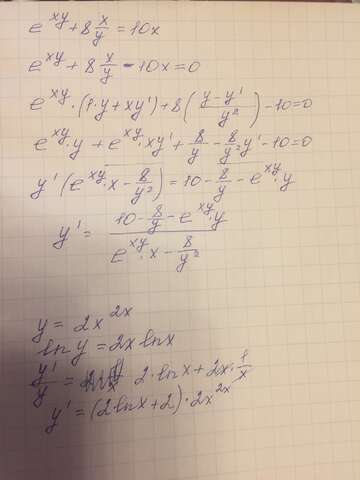 e^{xy} + 8 x/y = 10x
e^{xy} + 8 x/y - 10x = 0
e^{xy} · (1·y + xy') + 8 ( (y - y')/y² ) - 10 = 0
e^{xy} · y + e^{xy} · xy' + 8/y - 8/y² y' - 10 = 0
y' ( e^{xy} · x - 8/y² ) = 10 - 8/y - e^{xy} · y
y' = (10 - 8/y - e^{xy} · y) / (e^{xy} · x - 8/y²)
y = 2x^{2x}
ln y = 2x ln x
y'/y = 2 · ln x + 2x · 1/x
y' = (2 · ln x + 2) · 2x^{2x}